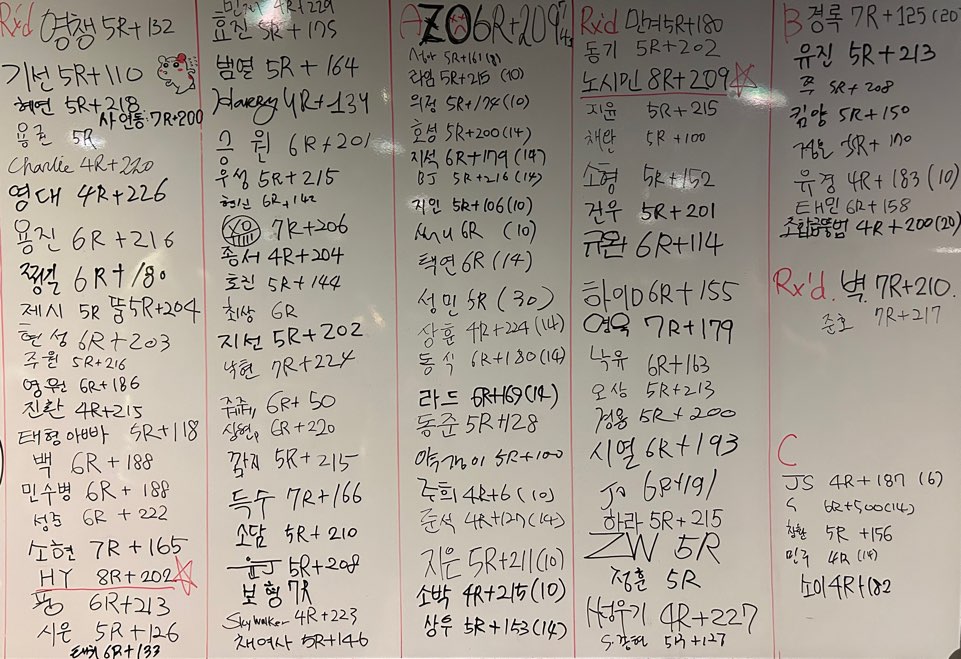 Rx'd 영챙 5R+132
기선 5R+110
혜연 5R+218
사연동 7R+200
용권 5R
Charlie 4R+220
영대 4R+226
용진 6R+216
쩡길 6R+180
제시 5R 뚬 5R+204
현성 6R+203
주원 5R+216
영원 6R+186
진환 4R+215
태형아빠 5R+118
백 6R+188
민수병 6R+188
성준 6R+222
소현 7R+165
HY 8R+202
퐁 6R+213
시은 5R+126
6R+133
4R+229
효진 5R+175
범열 5R+164
Harry 4R+134
승원 6R+201
우성 5R+215
현신 6R+142
XO 7R+206
종서 4R+204
효진 5R+144
최상 6R
지선 5R+202
낙현 7R+224
쥬쥬 6R+50
상현 6R+220
깜지 5R+215
득수 7R+166
소담 5R+210
윤J 5R+208
보형 7R
Skywalker 4R+223
채여사 5R+146
A ZO 6R+209
5R+161(8)
라임 5R+215 (10)
의정 5R+174(10)
효성 5R+200(14)
지석 6R+179(14)
BJ 5R+216(14)
지인 5R+106(10)
6R (10)
택연 6R (14)
성민 5R (30)
상훈 4R+224(14)
동식 6R+180(14)
라드 6R+169(14)
동준 5R+128
5R+100
주희 4R+6 (10)
준석 4R+127(14)
지은 5R+211(10)
소박 4R+215(10)
상투 5R+153(14)
Rx'd 만겨 5R+180
동기 5R+202
노시민 8R+209
지윤 5R+215
채란 5R+100
소형 5R+152
건우 5R+201
규완 6R+114
하이D 6R+155
영욱 7R+179
낙유 6R+163
오상 5R+213
정용 5R+200
시열 6R+193
JJ 6R+191
하라 5R+215
ZW 5R
정훈 5R
H성우기 4R+227
S강현 5R+127
B 경록 7R+125(20)
유진 5R+213
쪽 5R+208
김양 5R+150
정은 5R+170
유경 4R+183(10)
태민 6R+158
조합금똥법 4R+200(20)
Rx'd. 벽. 7R+210.
준호 7R+217
C
JS 4R+187 (6)
S 6R+500(14)
창환 5R+156
민우 4R (14)
소이 4R+182